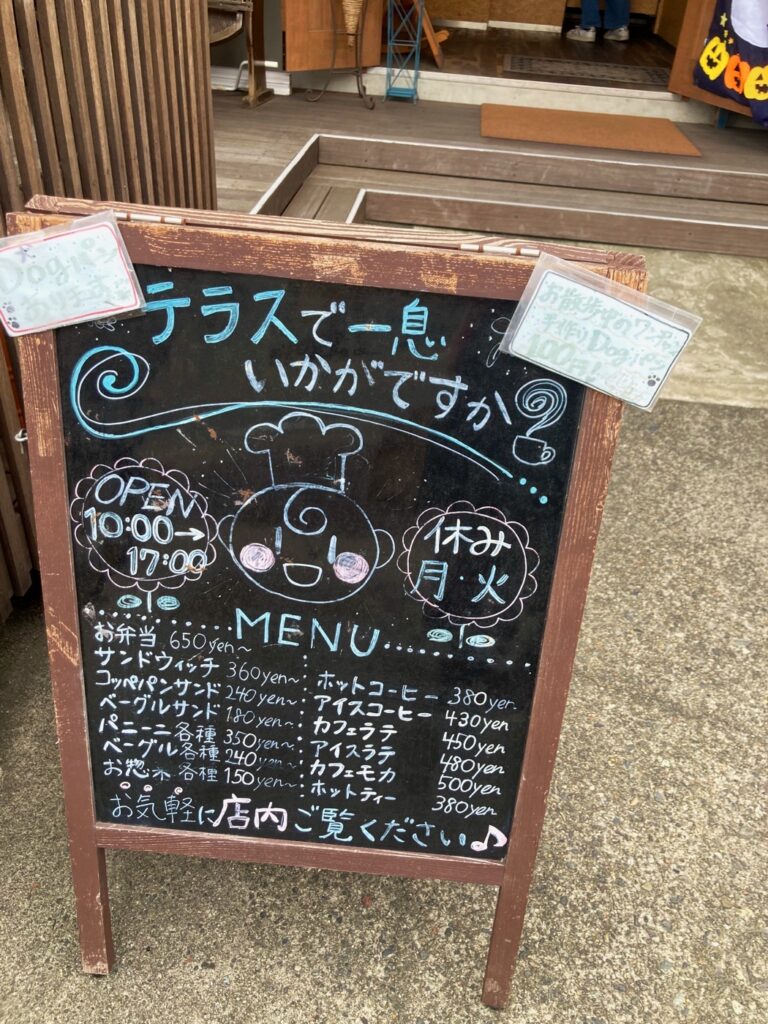 Dogパン
あります
お散歩中のワンチャン
手作りDogパン
100円!
テラスで一息
いかがですか?
OPEN
10:00→
17:00
休み
月・火
MENU
お弁当 650yen~
サンドウィッチ 360yen~
コッペパンサンド 240yen~
ベーグルサンド 180yen~
パニーニ各種 350yen~
ベーグル各種 240yen~
お惣菜 各種 150yen~
ホットコーヒー 380yen
アイスコーヒー 430yen
カフェラテ 450yen
アイスラテ 480yen
カフェモカ 500yen
ホットティー 380yen
お気軽に店内ご覧ください♪